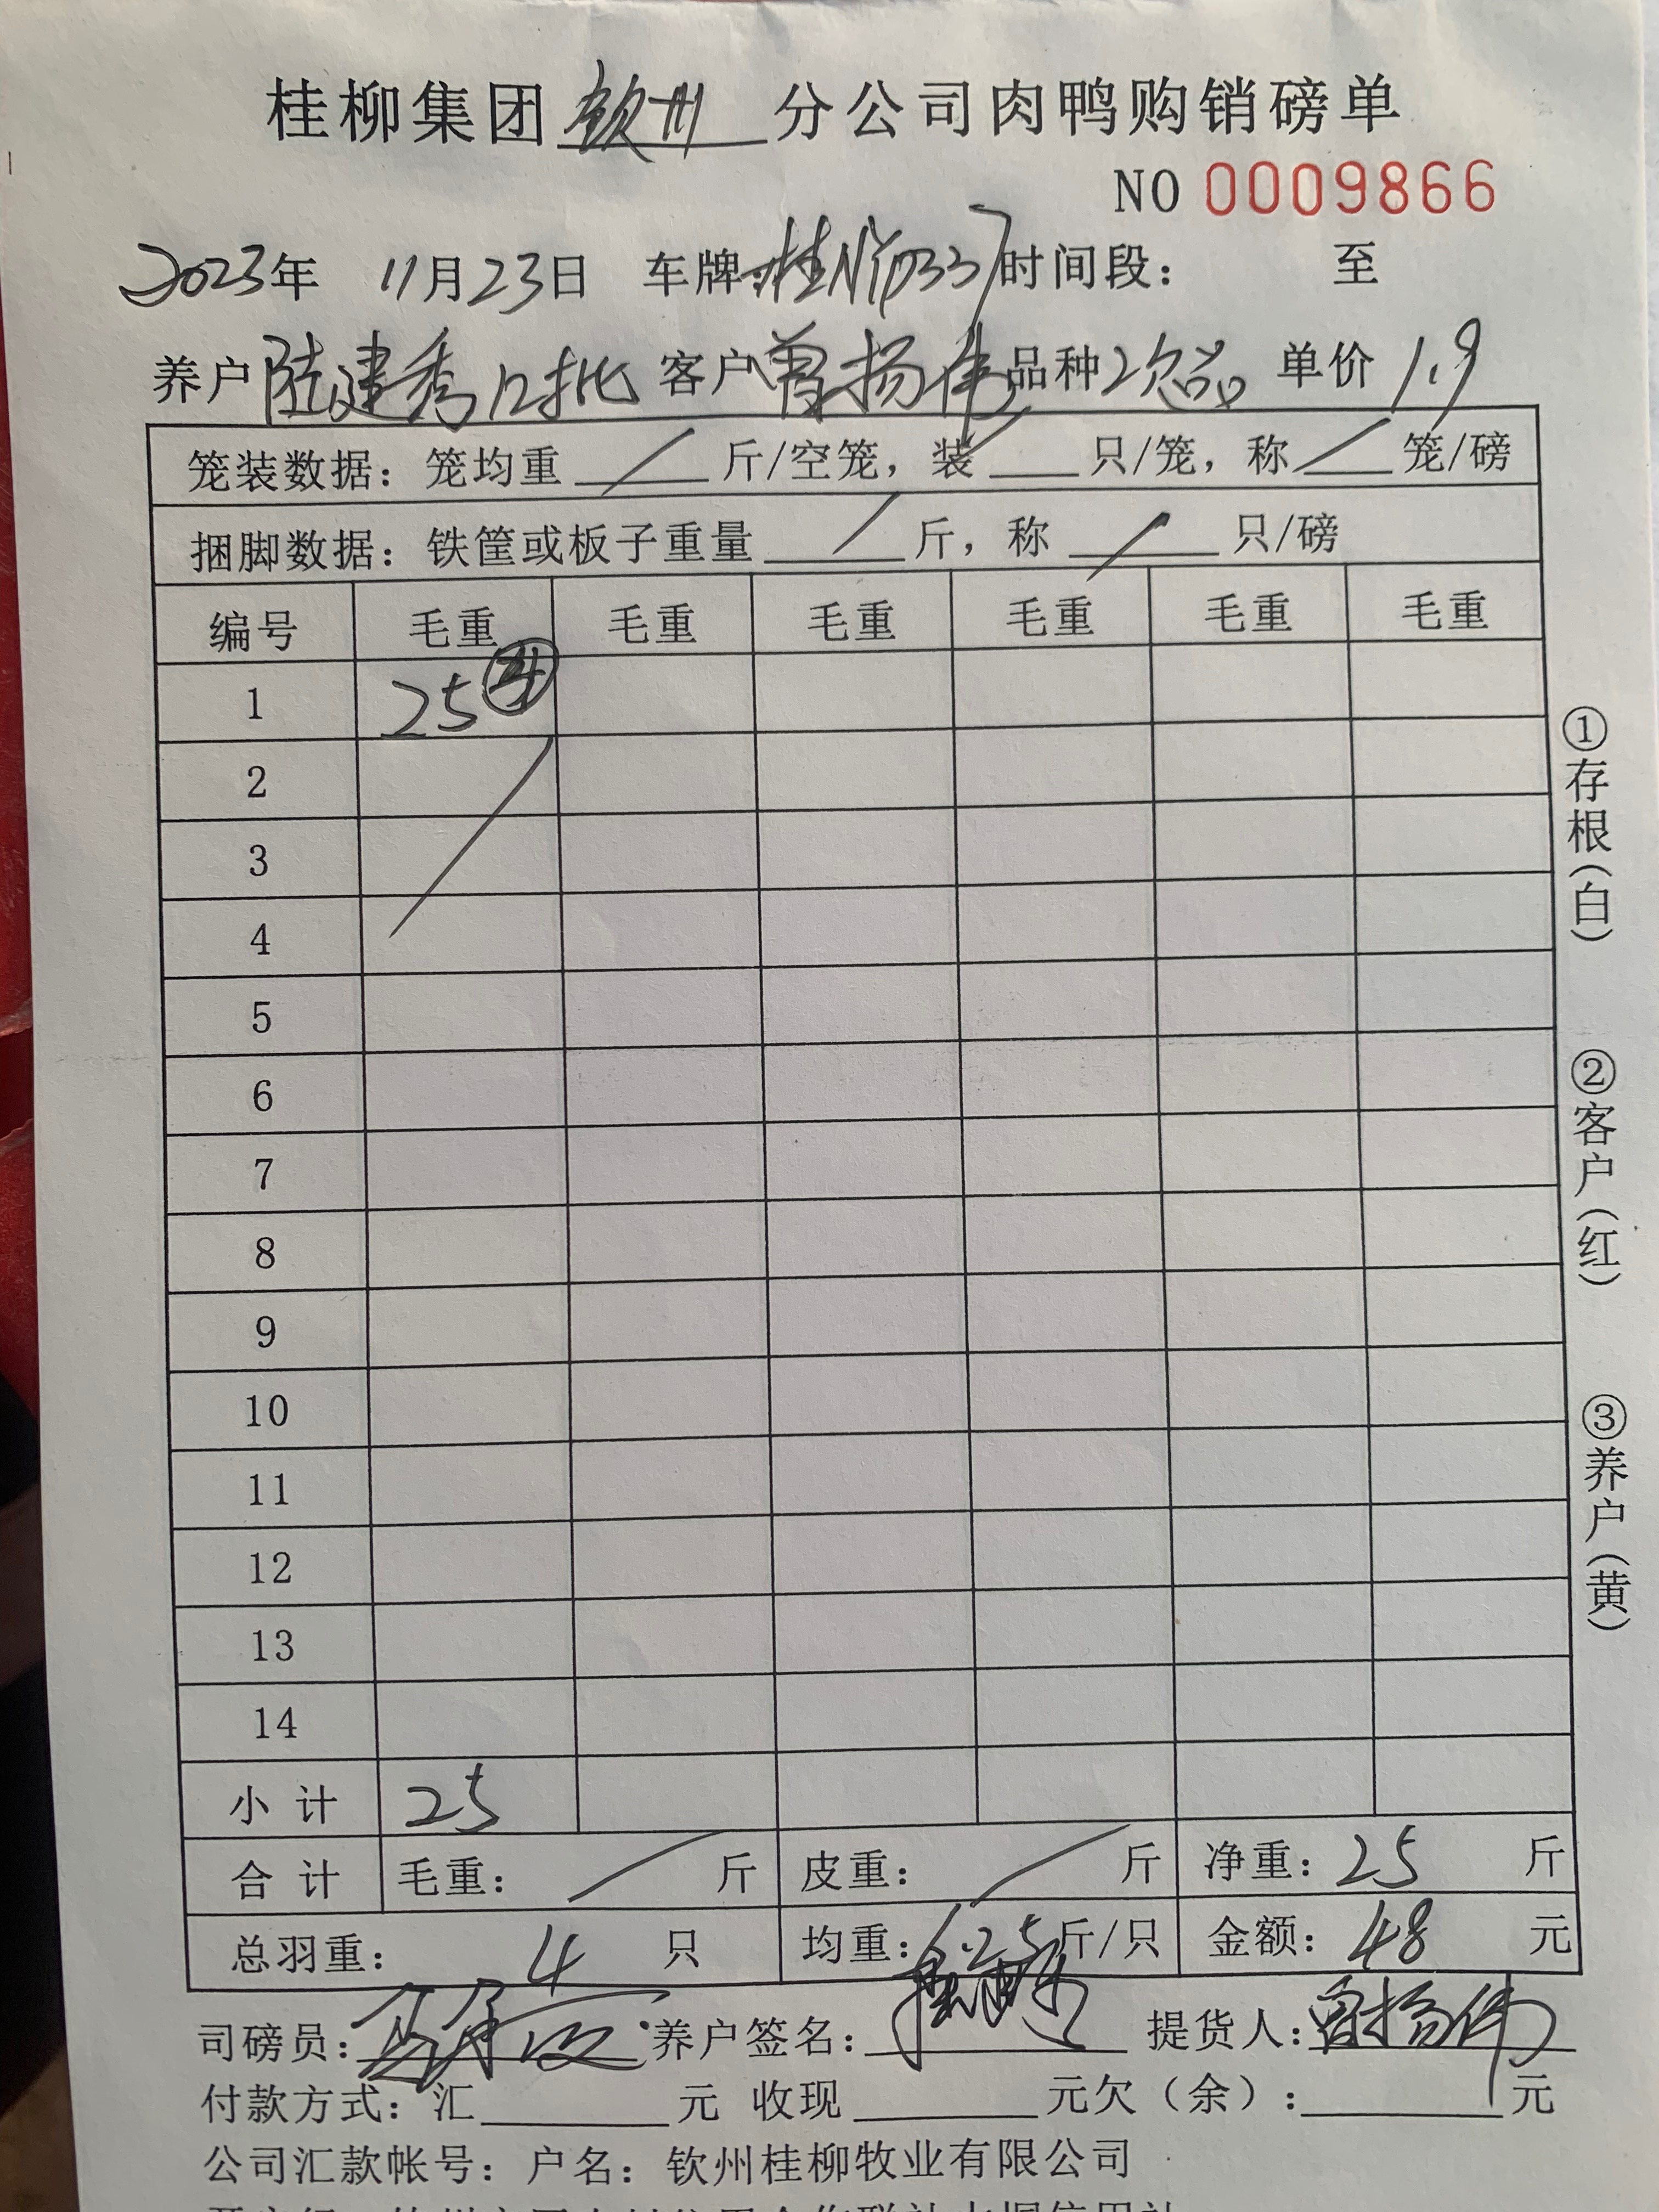 桂柳集团钦州分公司肉鸭购销磅单
NO 0009866
2023年 11月23日 车牌:桂N 时间段: 至
养户陆建秀12批 客户曾扬伟品种2次品 单价1.9
笼装数据: 笼均重 / 斤/空笼, 装 / 只/笼, 称 / 笼/磅
捆脚数据: 铁筐或板子重量 / 斤, 称 / 只/磅
编号 毛重 毛重 毛重 毛重 毛重 毛重
1 25 ④
2
3
4
5
6
7
8
9
10
11
12
13
14
小 计 25
合 计 毛重: / 斤 皮重: / 斤 净重: 25 斤
总羽重: 4 只 均重: 6.25 斤/只 金额: 48 元
司磅员: 养户签名: 提货人:曾扬伟
付款方式: 汇 元 收现 元欠(余): 元
公司汇款帐号: 户名: 钦州桂柳牧业有限公司
①存根(白)
②客户(红)
③养户(黄)